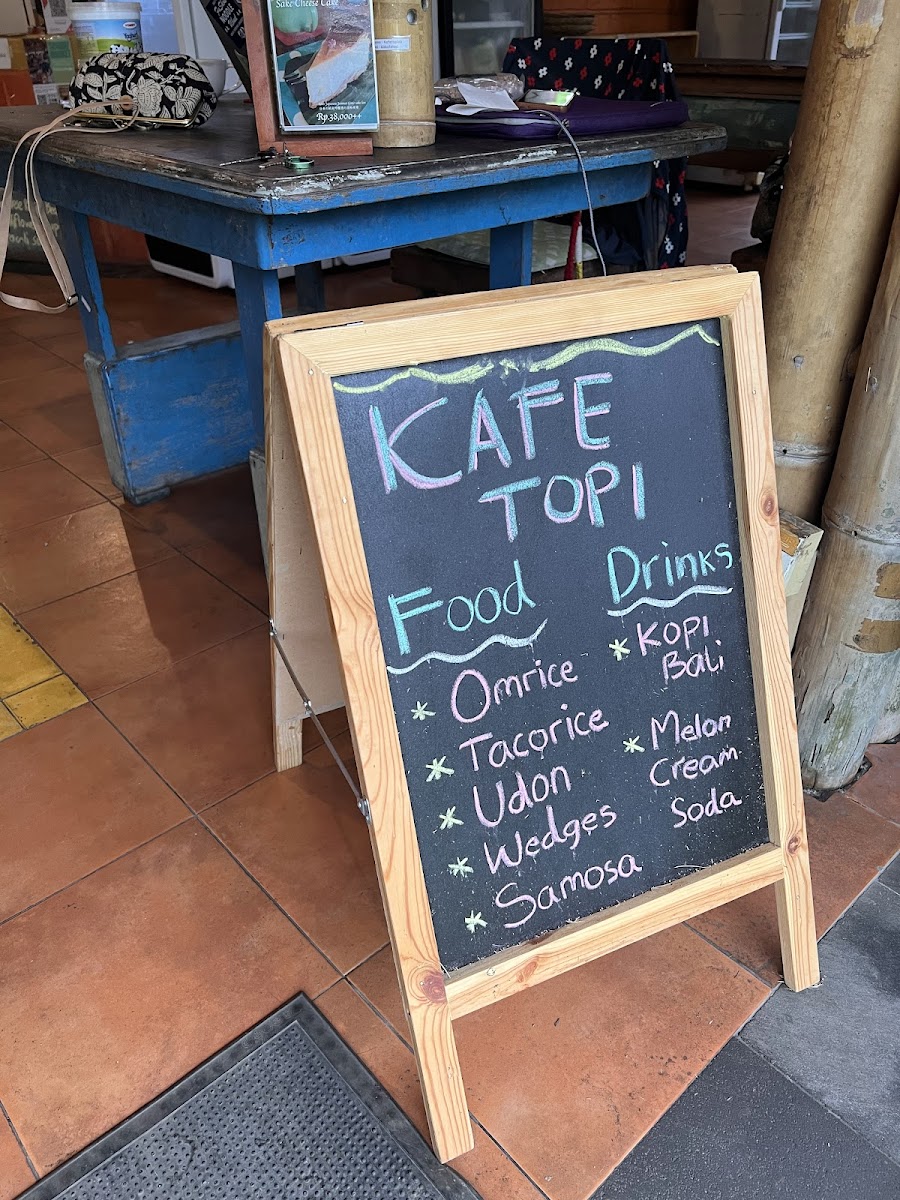 Sake Cheese Cake
Rp.38,000++
KAFE
TOPI
Food
* Omrice
* Tacorice
* Udon
* Wedges
* Samosa
Drinks
* Kopi
Bali
* Melon
Cream
Soda